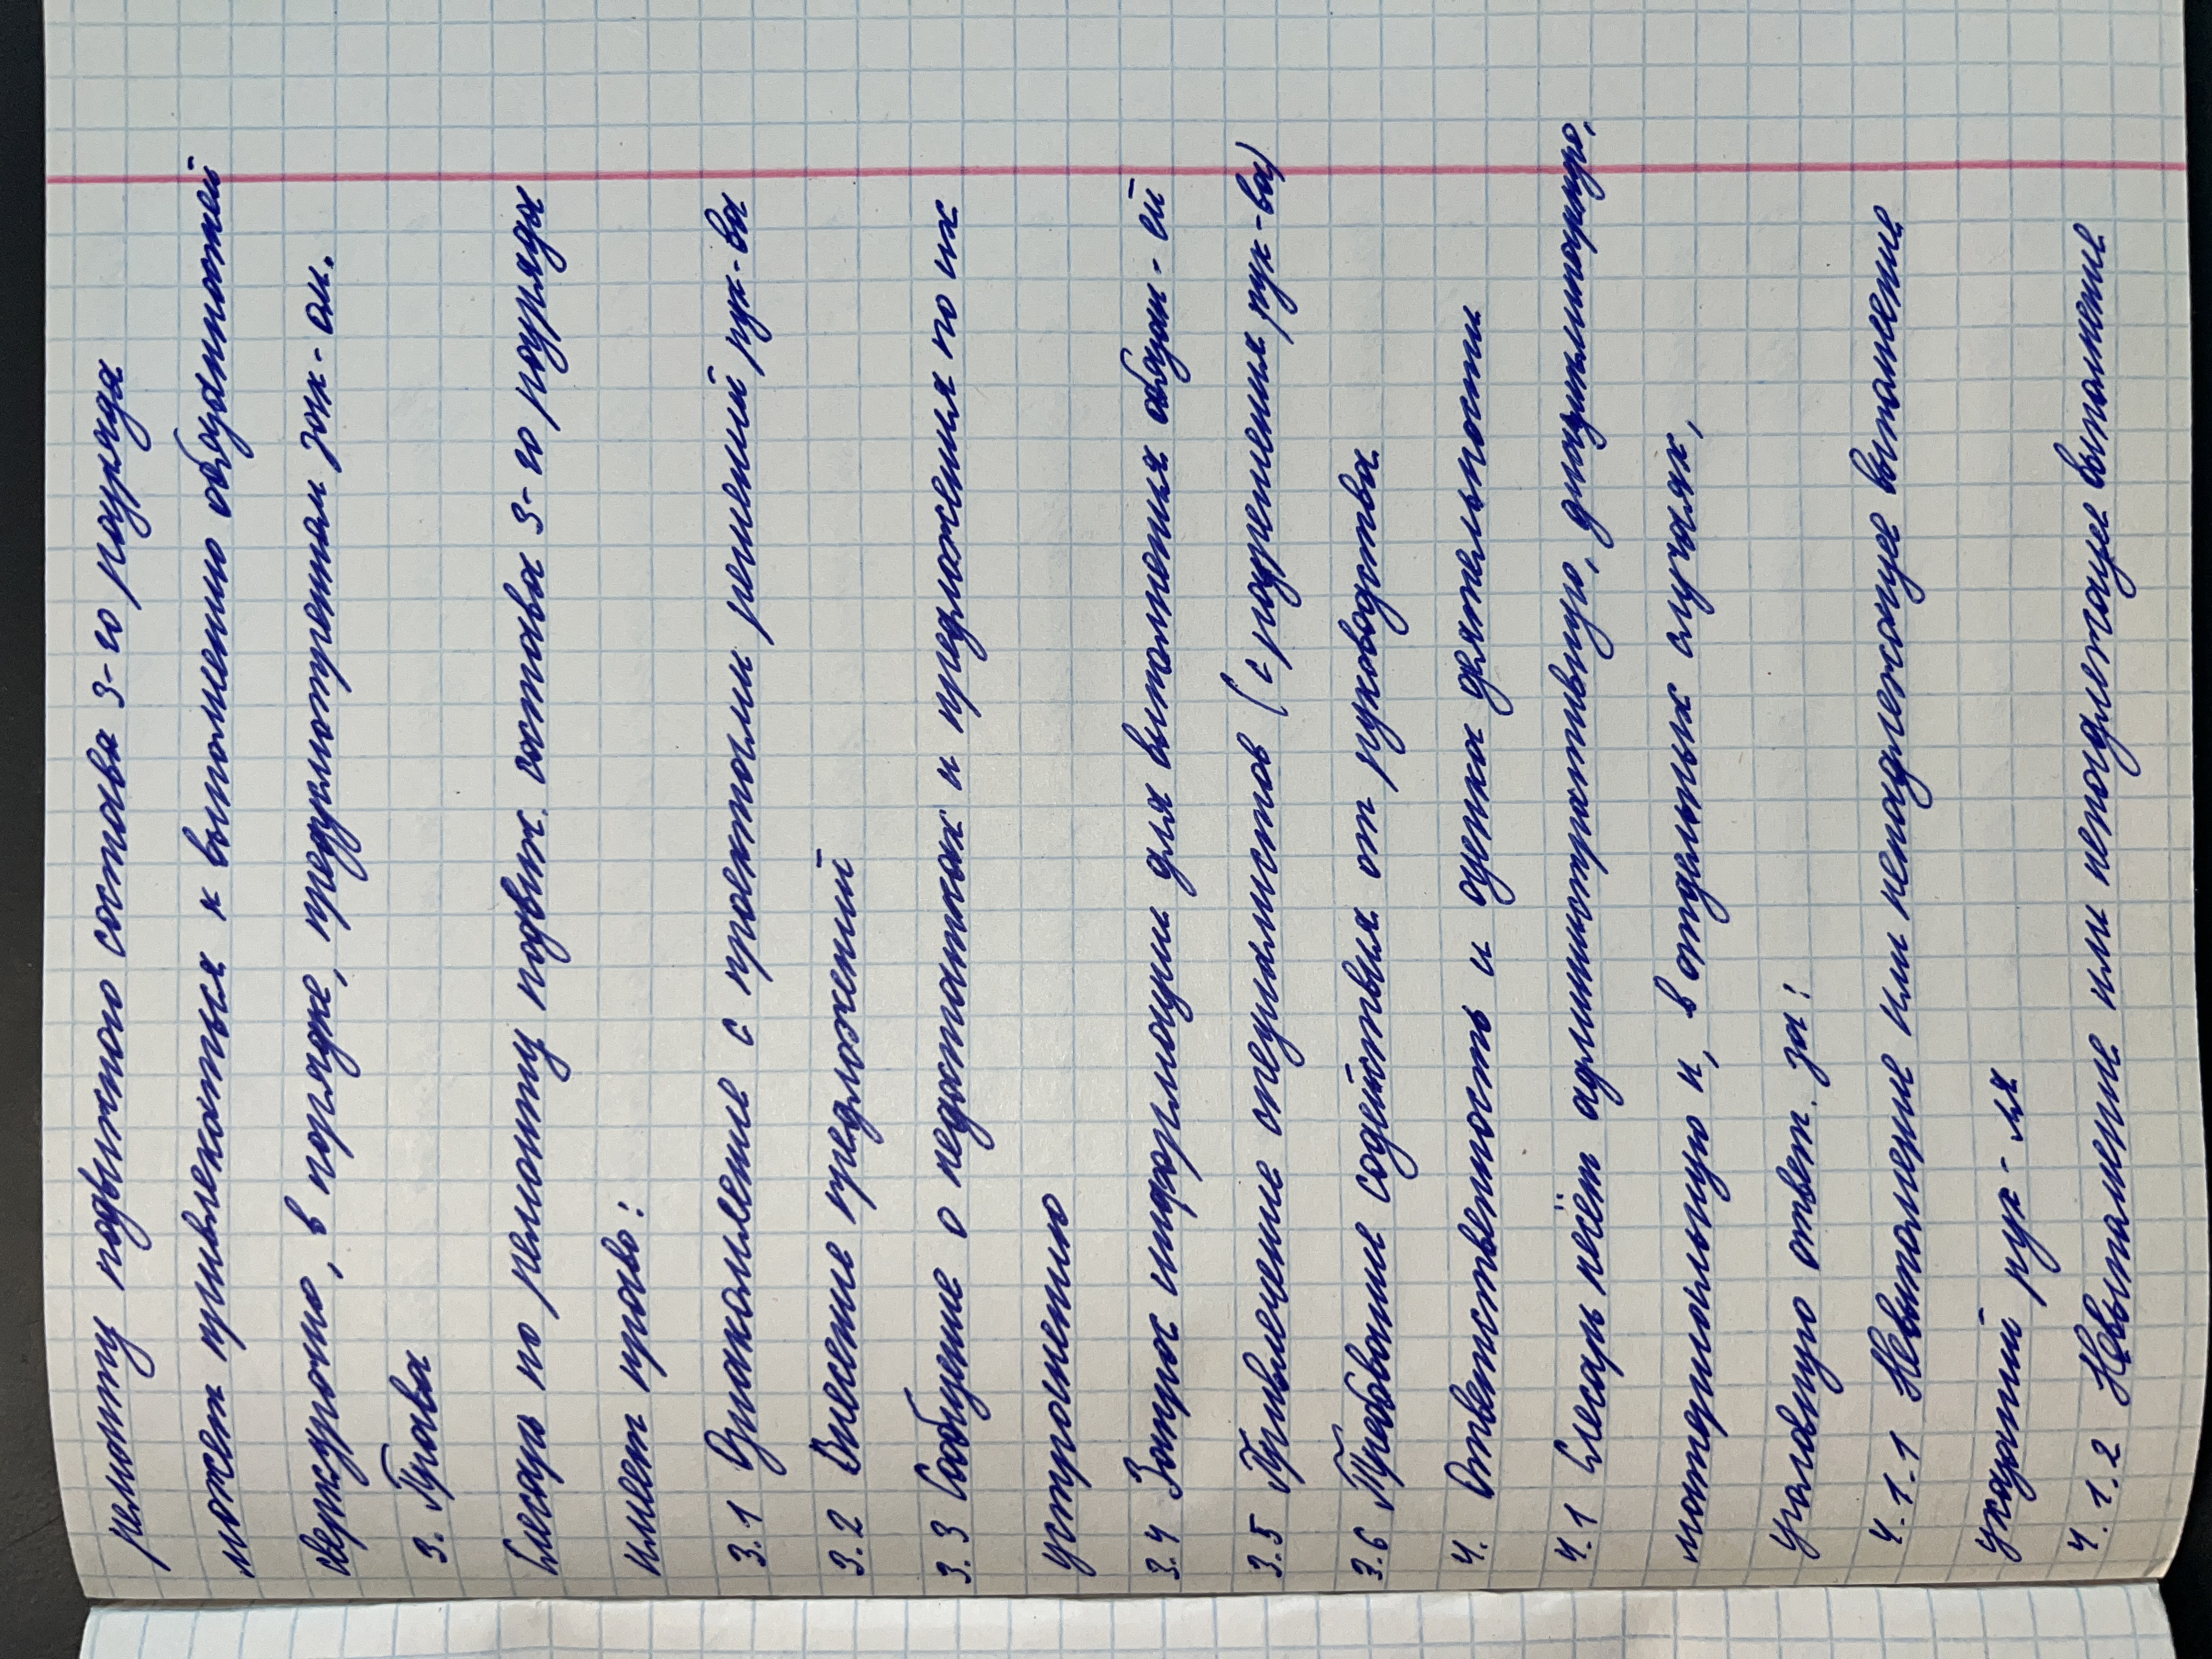 ремонту подвижного состава 3-го разряда
может привлекаться к выполнению обязанностей
сверхурочно, в порядке, предусмотренным зак-ом.
3. Права
Слесарь по ремонту подвиж. состава 3-го разряда
имеет право:
3.1 Ознакомление с проектами решений рук-ва
3.2 Внесение предложений
3.3 Сообщение о недостатках и предложения по их
устранению
3.4 Запрос информации для выполнения обязан-ей
3.5 Привлечение специалистов (с разрешения рук-ва)
3.6 Требование содействия от руководства
4. Ответственность и оценка деятельности
4.1 Слесарь несёт административную, дисциплинарную,
материальную и, в отдельных случаях,
уголовную ответ. за:
4.1.1 Невыполнение или ненадлежащее выполнение
указаний рук-ля
4.1.2 Невыполнение или ненадлежащее выполнение